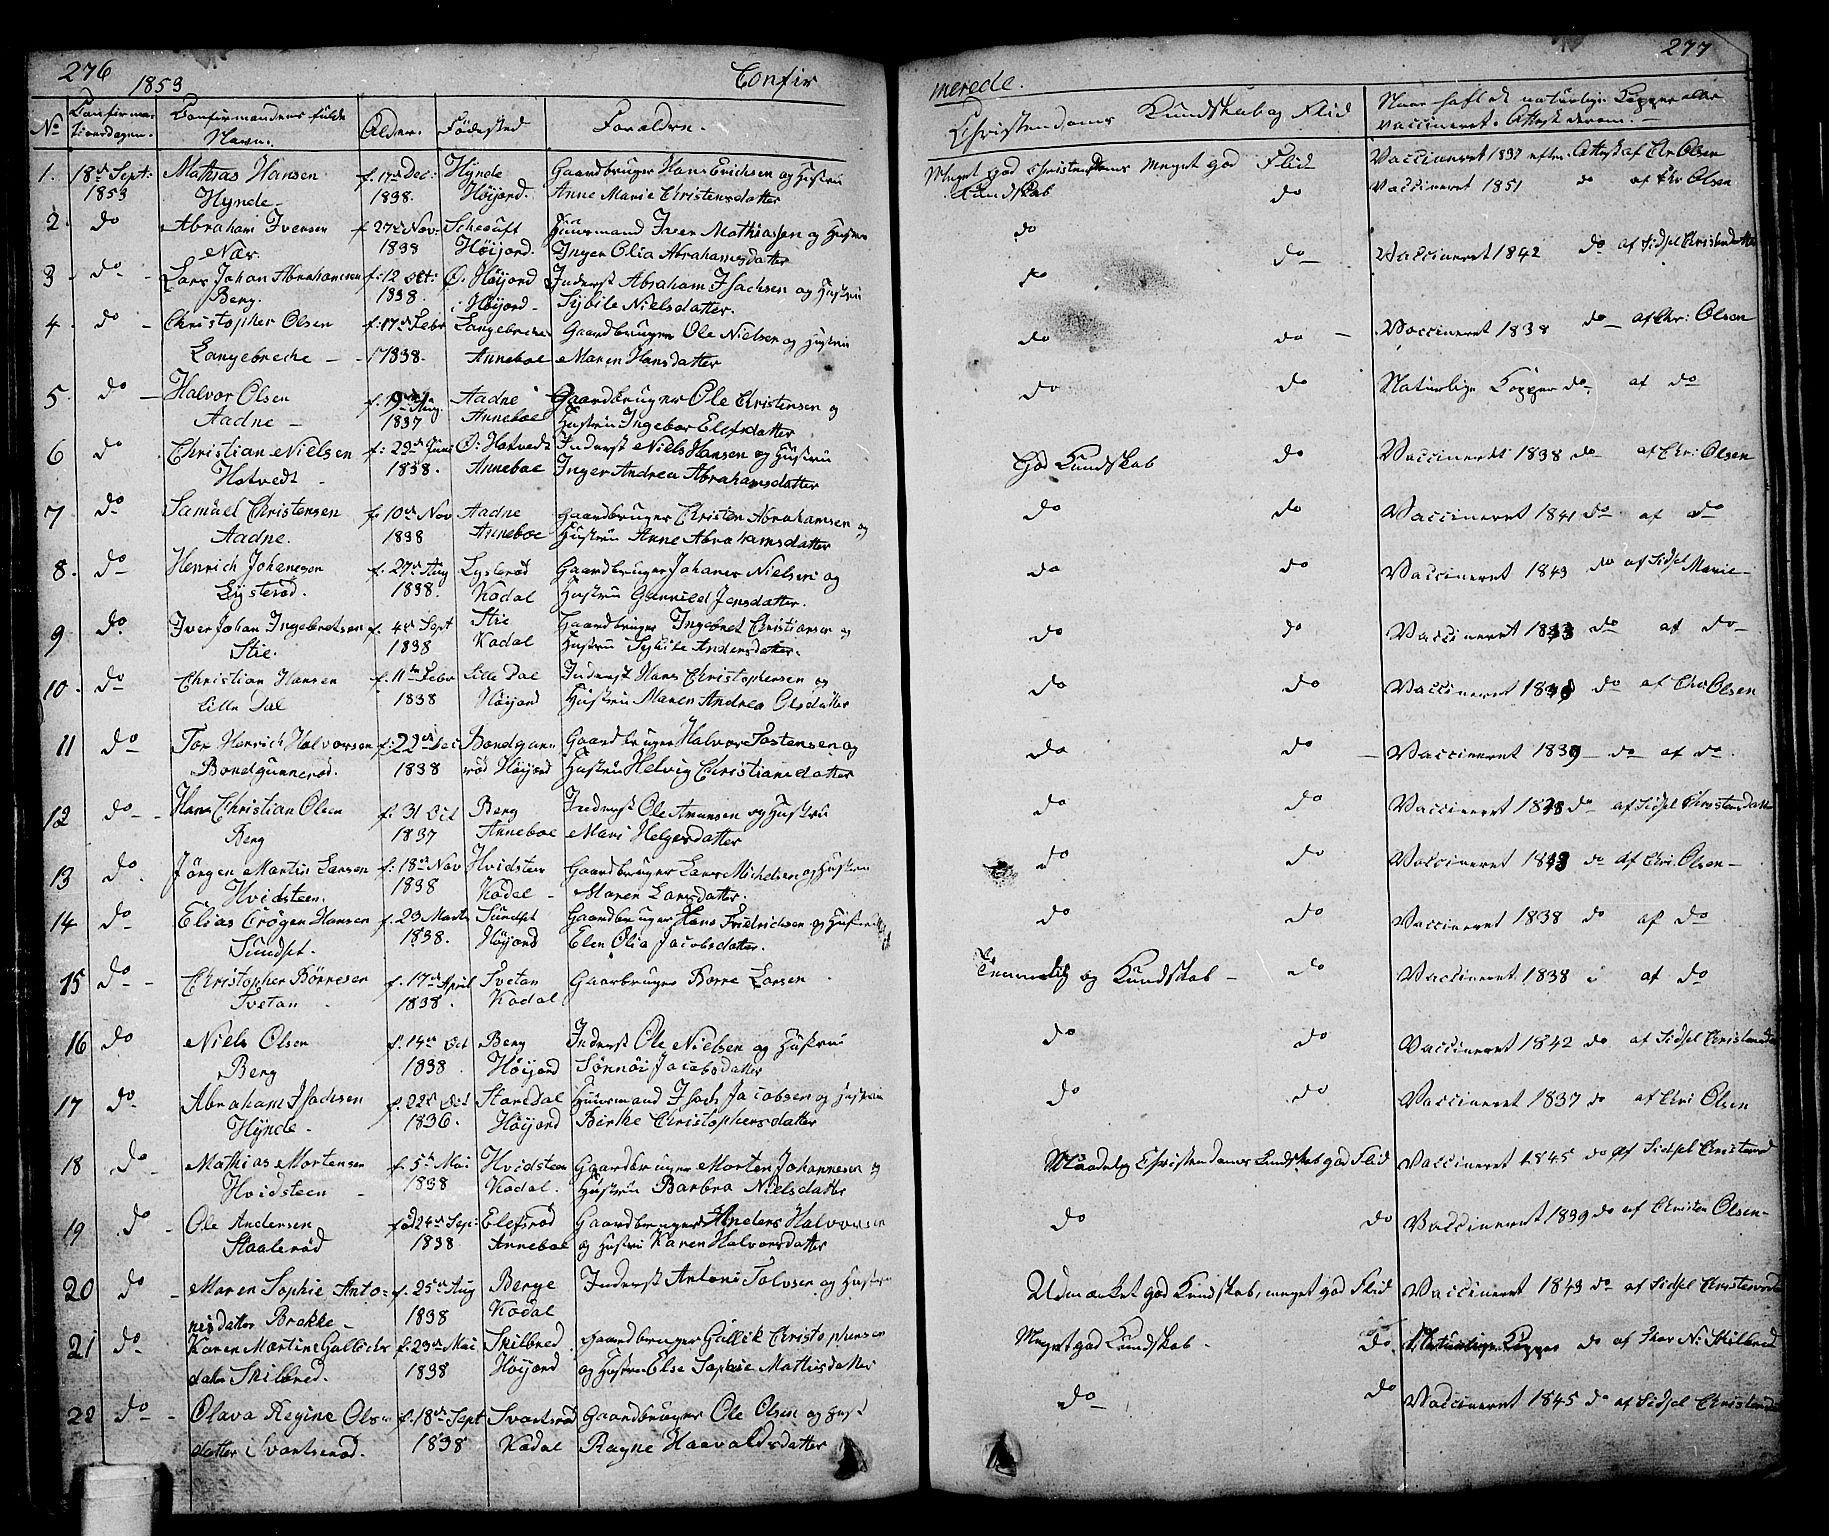 276
1853
Confir
No
Confirma-
tionsdagen.
Confirmandens fulde
Navn.
Alder.
Födested
Forældre.
1. 18de Sept. Mathias Hansen f. 17de Dec. Hynde Gaardbruger Hans Erichsen og Hustru
1853 Hynde 1838. Höijord. Anne Marie Christensdatter
2. do Abraham Iversen f. 27de Nov. Huusmand Iver Mathiassen og Hustru
Næs 1838 Höijord. Inger Olia Abrahamsdatter
3 do Lars Johan Abrahamsen f. 12 Oct. Ö. Höijord Inderst Abraham Isachsen og Hustru
Berg. 1838. i Höijord Sybile Nielsdatter.
4 do Christopher Olsen f. 17de Febr Langebreche Gaardbruger Ole Nielsen og Hustru
Langebreche 1838. Anneboe Maren Hansdatter
5. do Halvor Olsen Aadne Gaardbruger Ole Christensen og
Aadne 1837 Anneboe Hustru Ingebor Elefsdatter
6 do Christian Nielsen f. 29de Juni Ö. Hotvedt Inderst Niels Hansen og Hustru
Hotvedt 1838. Anneboe Inger Andrea Abrahamsdatter
7 do Samuel Christensen f. 10de Nov Aadne Gaardbruger Christen Abrahamsen og
Aadne. 1838 Anneboe Hustru Anne Abrahamsdatter
8. do Henrich Johanesen f. 27de Aug Lysteröd Gaardbruger Johanes Nielsen og
Lysteröd. 1838. Kodal Hustru Gunnild Jensdatter.
9 do Iver Johan Ingebretsen f. 4de Sept Stie Gaardbruger Ingebret Christiansen og
Stie. 1838 Kodal Hustru Sybile Andersdatter.
10. do Christian Hansen f. 11te Febr Lille Dal Inderst Hans Christophersen og
Lille Dal 1838 Höijord Hustru Maren Andrea Olsdatter
11 do Tor Henrich Halvorsen f. 22de Dec Bondgun- Gaardbruger Halvor Tostensen og
Bondgunneröd. 1838 röd Höijord Hustru Helvig Christiansdatter
12 do Hans Christian Olsen f. 31 Oct Berg Inderst Ole Amunsen og Hustru
Berg 1837 Anneboe Mari Helgesdatter
13 do. Jörgen Martin Larsen f. 18de Nov Hvidsten Gaardbruger Lars Michelsen og Hustru
Hvidsteen. 1838 Kodal Maren Larsdatter.
14 do Elias Crögen Hansen f. 23 Marts Sundset Gaardbruger Hans Fridrichsen og Hustru
Sundset. 1838. Höijord Elen Olia Jacobsdatter.
15 do Christopher Börresen f. 17de April Tvetan Gaarbruger Börre Larsen
Tvetan 1838. Kodal
16 do Niels Olsen f. 14de Oct Berg Inderst Ole Nielsen og Hustru
Berg 1838 Höijord Sönnöi Jacobsdatter
17 do Abraham Isachsen f. 22de Oct Storedal Huusmand Isach Jacobsen og Hustru
Hynde 1836. Höijord Birthe Christophersdatter
18 do Mathias Mortensen f. 5te Mai Hvidsteen Gaardbruger Morten Johannesen og
Hvidsteen 1838 Kodal. Hustru Barbra Nielsdatter
19 do Ole Andersen föd 24de Sept: Elefsröd Gaardbruger Anders Halvorsen
Staaleröd 1838 Anneboe og Hustru Karen Halvorsdatter
20 do Maren Sophie Anto- f. 25de Aug Berge Inderst Antoni Tolvsen og Hustru
nisdatter Brakke 1838 Kodal
21 do Karen Martine Gullichs- f. 23de Mai Skilbred Gaardbruger Gullik Christophersen
datr Skilbred. 1838 Höijord og Hustru Else Sophie Mathisdatter
22 do Olava Regine Ols- f. 18de Sept Svartsröd Gaardbruger Ole Olsen og Hust
datter Svartsröd. 1838 Kodal Ragne Haavaldsdatter
277
merede.
Christendoms Kundskab og Flid
Naar haft de naturlige Kopper eller
vaccineret. Attest derom.
Meget god Christendoms meget god Flid Vaccineret 1837 efter Attest af Chr Olsen
Kundskab do Vaccineret 1851 do af Chr Olsen
do do Vaccineret 1842 do af Sidsel Christensdatter
do
do do Vaccineret 1838 do af Chr: Olsen
do do Naturlige Kopper do. af do
God Kundskab do Vaccineret 1838 do af Chr: Olsen
do do Vaccineret 1841 do af do
do do Vaccineret 1843 do af Sidsel Marie
do do Vaccineret 1843 do af do
do do Vaccineret do af Chr Olsen
do do Vaccineret 1839 do af do.
do do Vaccineret do af Sidsel Christensdatt
do do Vaccineret 1843 do af Chr. Olsen
do do Vaccineret 1838 do af do
Temmelig og Kundskab do Vaccineret 1838 af do
do do Vaccineret 1842 do af Sidsel Christensda
do do Vaccineret 1837 do af Chr Olsen
Maadelig Christendoms Kundskab god Flid Vaccineret 1845 do af Sidsel Christensd
do do Vaccineret 1839 do af Christen Olsen
Udmærket god Kundskab, meget god Flid Vaccineret 1843 do af Sidsel Christensda
Meget god Kundskab. do. Naturlige Kopper do af Thor N. Skilbred
do do Vaccineret 1845 do af Sidsel Christensda